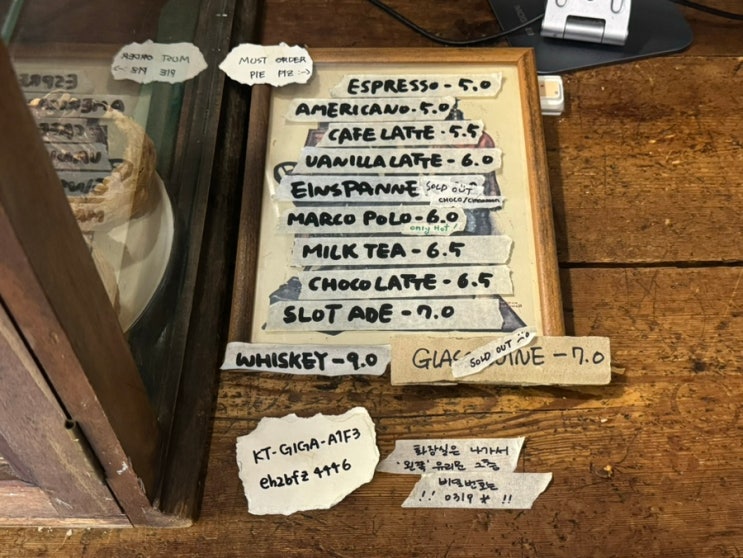 MUST ORDER
PIE PIZ :->
ESPRESSO - 5.0
AMERICANO - 5.0
CAFE LATTE - 5.5
VANILLA LATTE - 6.0
EINSPANNE SOLD OUT
CHOCO/CINNAMON
MARCO POLO - 6.0
only Hot!
MILK TEA - 6.5
CHOCO LATTE - 6.5
SLOT ADE - 7.0
WHISKEY - 9.0
GLASS WINE - 7.0
SOLD OUT
KT-GIGA-A1F3
eh2bfz4446
화장실은 나가서
'왼쪽' 유리문 2층
비밀번호는
!! 0319 * !!